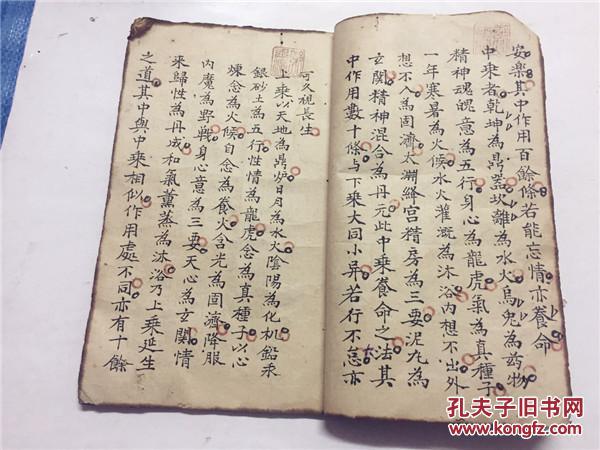 安樂其中作用百餘條若能忘情亦養命
中乘者乾坤為鼎器坎離為水火烏兔為葯物
精神魂魄意為五行身心為龍虎氣為真種子
一年寒暑為火候水火灌溉為沐浴內想不出外
想不入為固濟太淵絳宮精房為三要泥丸為
玄関精神混合為丹元此中乘養命之法其
中作用數十條与下乘大同小异若行不怠亦
可久視長生
上乘以天地為鼎炉日月為水火陰陽為化机鉛汞
銀砂土為五行性情為龍虎念為真種子以心
煉念為火候自念為養火含光為固濟降服
內魔為野戰身心意為三要天心為玄関情
來歸性為丹成和氣薰蒸為沐浴乃上乘延生
之道其中與中乘相似作用處不同亦有十餘
孔夫子旧书网
www.kongfz.com